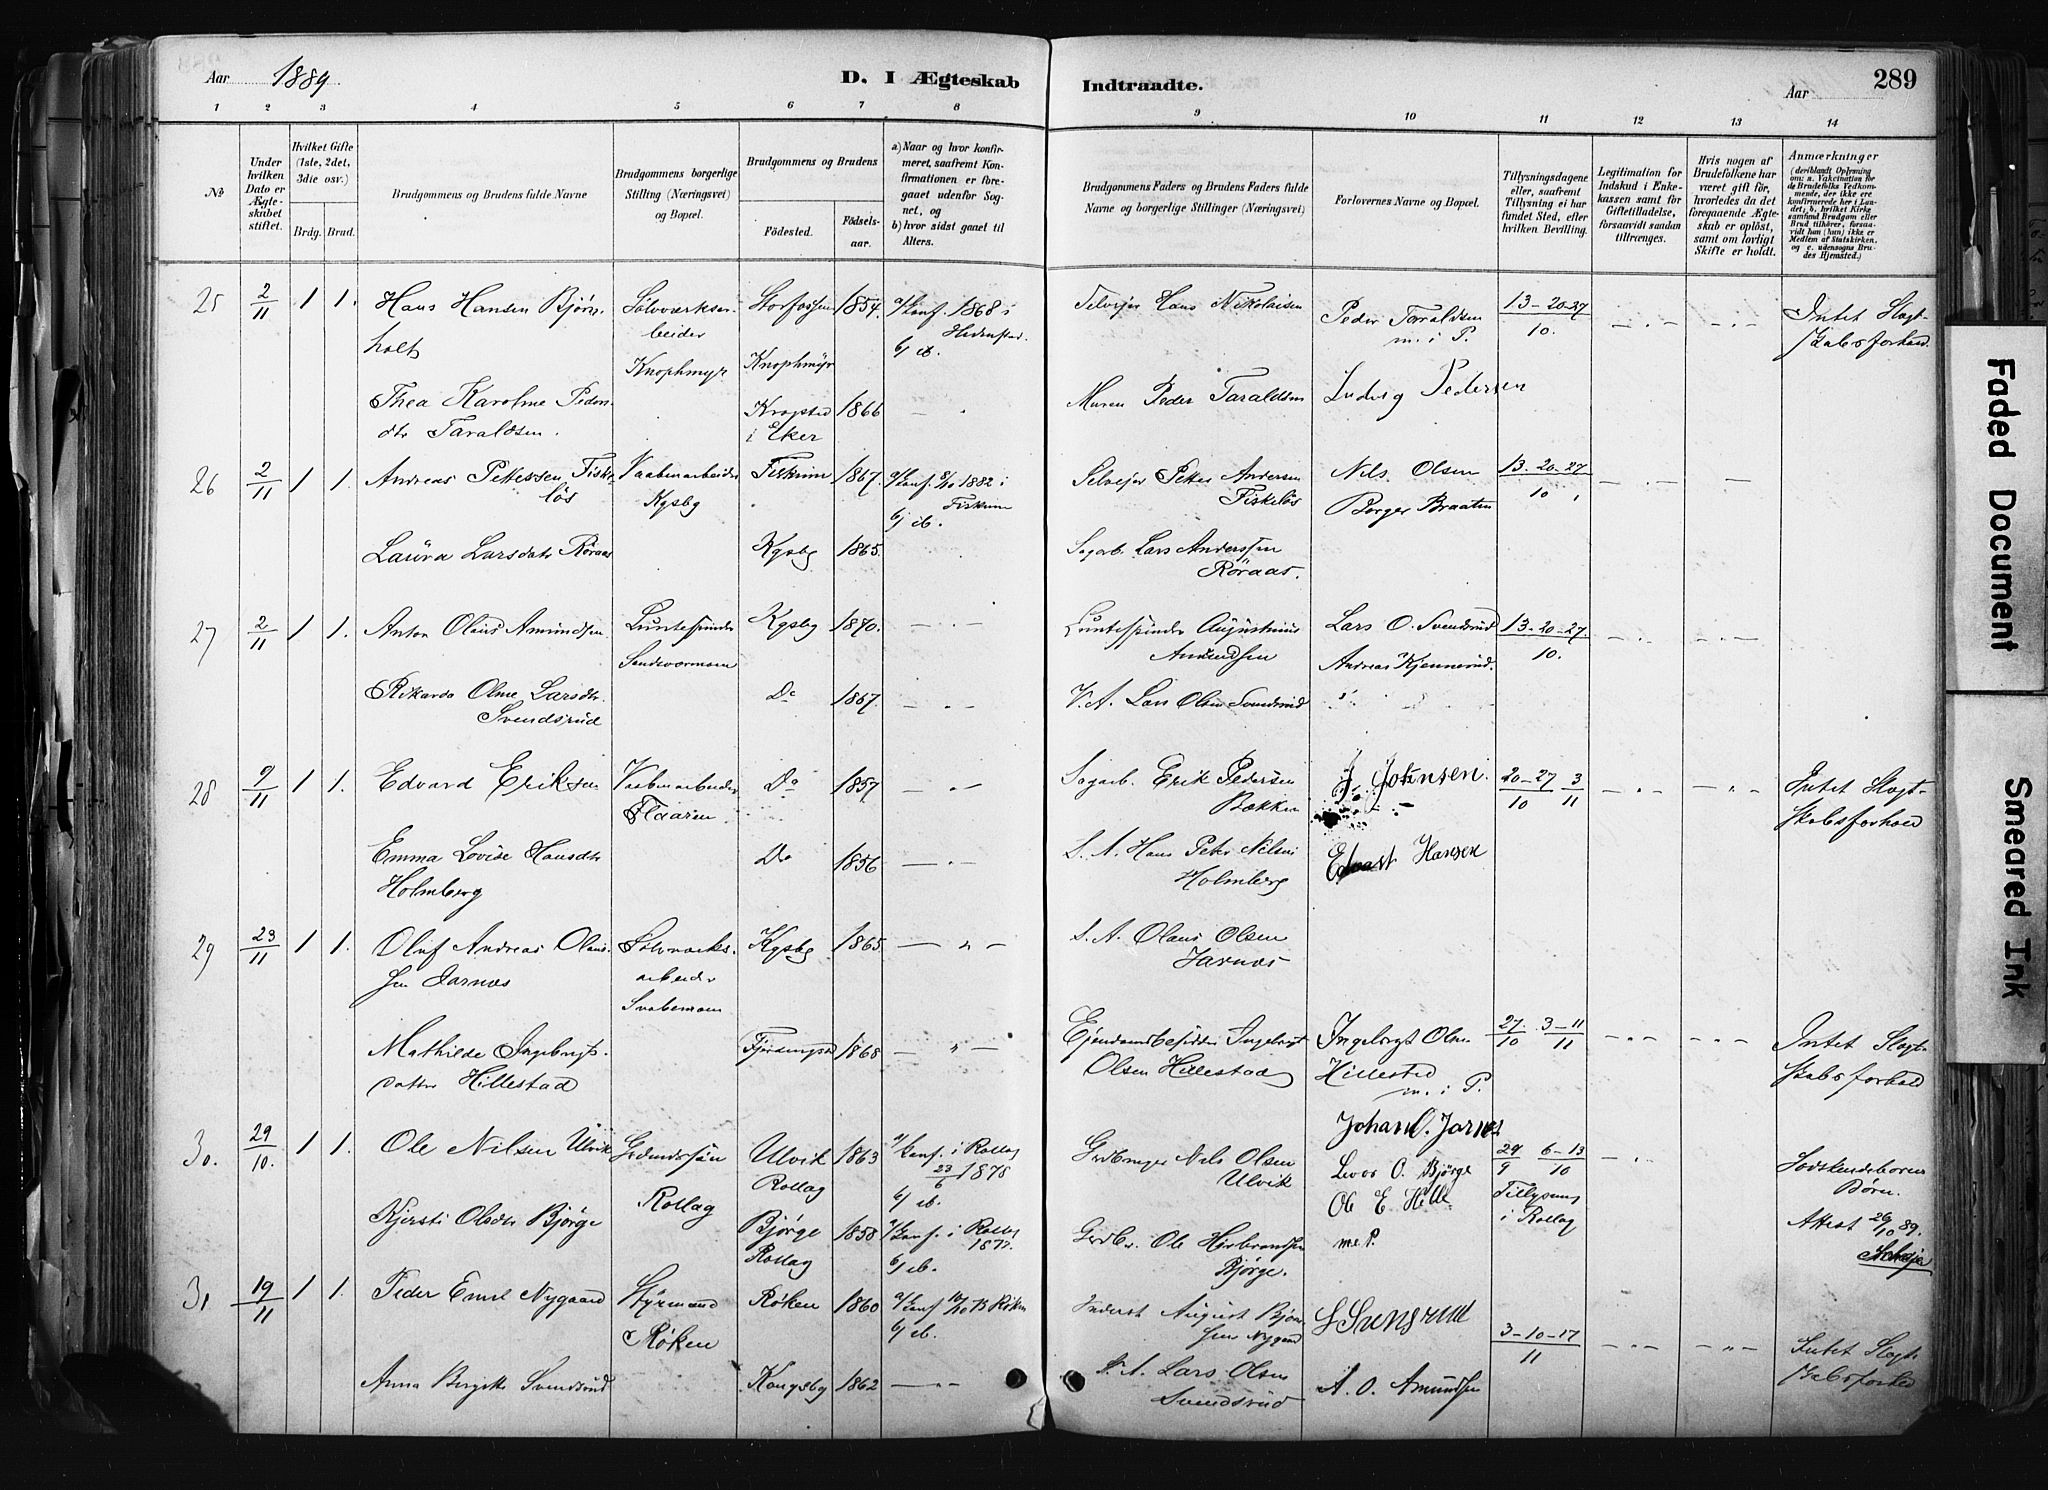 Aar 1889
D. I Ægteskab
Indtraadte.
Aar
289
1 2 3 4 5 6 7 8
9 10 11 12 13 14
No
Under hvilken Dato er Ægteskabet stiftet.
Hvilket Gifte (1ste, 2det, 3die osv.)
Brdg.
Brud.
Brudgommens og Brudens fulde Navne
Brudgommens borgerlige Stilling (Næringsvei) og Bopæl.
Brudgommens og Brudens
Fødested.
Fødselsaar.
a) Naar og hvor konfirmeret, saafremt Konfirmationen er foregaaet udenfor Sognet, og
b) hvor sidst gaaet til Alters.
Brudgommens Faders og Brudens Faders fulde Navne og borgerlige Stillinger (Næringsvei)
Forlovernes Navne og Bopæl.
Tillysningsdagene eller, saafremt Tillysning ei har fundet Sted, efter hvilken Bevilling.
Legitimation for Indskud i Enkekassen samt for Giftetilladelse, forsaavidt saadan tiltrænges.
Hvis nogen af Brudefolkene har været gift før, hvorledes da det foregaaende Ægteskab er opløst, samt om lovligt Skifte er holdt.
Anmærkninger
25 2/11 1 1. Hans Hansen Bjørnholt
Sølvværksarbeider Knophmyr
Storfossen Knophmyr 1854.
a/ Konf. 1868 i Hedenstad. b/ ib.
Hans Nikolaisen
Peder Taraldsen m. i P.
13-20-27/10.
Intet Slægtskabsforhold.
Thea Karoline Pedersdtr Taraldsen.
Krogstad i Eker 1866
Murer Peder Taraldsen
Ludvig Pedersen
26 2/11 1 1. Andreas Pettersen Fiskeløs
Vaabenarbeider Kgsbg
Fiskum 1867.
a/ Konf. 8/10 1882 i Fiskum b/ ib.
Selveier Petter Andersen Fiskeløs
Nels Olsen
Borger Braaten
13-20-27/10
Laura Larsdatr Røraas
Kgsbg 1865.
Sagarb. Lars Anderssen Røraas.
27 2/11 1 1. Anton Olaus Amundsen
Luntespinder Sandsværmoen
Kgsbg 1870.
Luntespinder Augustinus Amundsen
Lars O. Svendsrud
Andreas Kjennerud.
13-20-27/10.
Rikarda Oline Larsdtr. Svendsrud
Do 1867.
V. A. Lars Olsen Svendsrud
28 9/11 1 1. Edvard Eriksen
Vaabenarbeider Flaaren
Do 1857
Sagarb. Erik Pedersen Bækken
J. Johnsen.
20-27/10 3/11
Intet Slægtskabsforhold
Emma Lovise Hansdtr Holmberg
Do 1856
S. A. Hans Peter Nilsen Holmberg
Edvart Hansen
29 23/11 1 1. Oluf Andreas Olaussen Jarnæs
Sølvværksarbeider
Kgsbg 1865.
S. A. Olaus Olsen Jarnæs
Mathilde Ingebrigtsdatter Hillestad
1868
Eiendomsbesidder Ingebrigt Olsen Hillestad
Ingebrigt Olsen Hillestad m. i P.
Johan O. Jarnes
27/10 3-11/11
Intet Slægtskabsforhold
30. 29/10. 1 1. Ole Nilsen Ulvik
Rollag
Ulvik Rollag 1863
a/ Konf. i Rollag 23/6 1878 b/ ib.
Grdbruger Nils Olsen Ulvik
O. Bjørge
Ole E. Hille
m. e P.
29/9 6-13/10
Tillysning i Rollag
Sødskendebørns Børn.
Attest 26/10 89.
Kjersti Olsdtr Bjørge
Bjørge Rollag 1858
a/ Konf. i Rollag 1872. b/ ib.
Grdbr. Ole Bjørge.
31 19/11 1 1. Peder Emil Nygaard
Styrmand Røken
Røken 1860
b/ ib.
Inderst August Nygaard
S Svensrud
3-10-17/11
Intet Slægtskabsforhold
Anna Birgitte Svendsrud
Kongsbg 1862
S. A. Lars Olsen Svendsrud
A. O. Amundsen
Faded Document
Smeared Ink